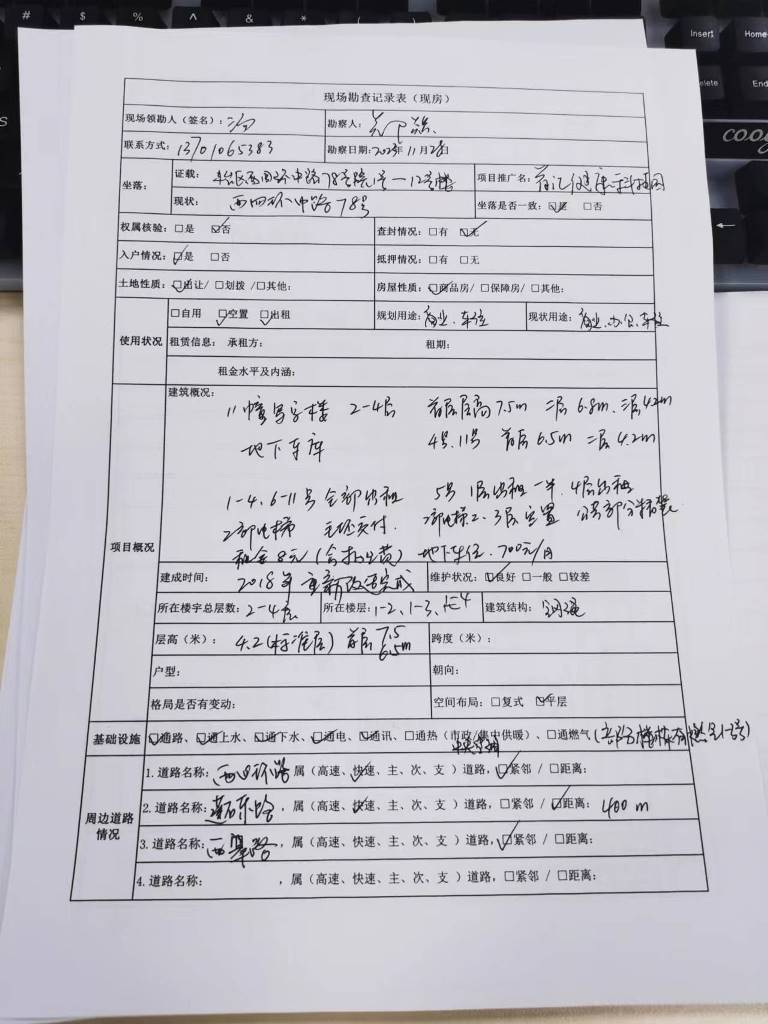 # $ % ^ & * (
Insert Home
elete End
coo
现场勘查记录表（现房）
现场领勘人（签名）： 勘察人：
联系方式：13701065383 勘察日期：2023年11月28日
坐落： 证载：丰台区西四环中路78号院1号—12号楼 项目推广名：首汇健康科技园
现状：西四环中路78号 坐落是否一致：☑是 □否
权属核验：□是 ☑否 查封情况：□有 ☑无
入户情况：☑是 □否 抵押情况：□有 □无
土地性质：☑出让/ □划拨 /□其他： 房屋性质：☑商品房/ □保障房/ □其他：
使用状况 □自用 ☑空置 ☑出租 规划用途：商业、车位 现状用途：商业、办公、车位
租赁信息： 承租方： 租期：
租金水平及内涵：
项目概况 建筑概况：
11幢写字楼 2-4层 首层层高7.5m 二层6.8m、三层4.2m
地下车库 4号、11号 首层6.5m 二层4.2m
1-4、6-11号全部出租 5号 1层出租一半、4层出租
2部电梯 毛坯交付. 2部电梯 2、3层空置 部分精装
租金8元（含物业费） 地下车位、700元/月
建成时间： 2018年重新改造完成 维护状况：☑良好 □一般 □较差
所在楼宇总层数：2-4层 所在楼层：1-2、1-3、1-4 建筑结构：钢混
层高（米）： 4.2（标准层） 首层7.5 6.5m 跨度（米）：
户型： 朝向：
格局是否有变动： 空间布局：□复式 ☑平层
基础设施 ☑通路、☑通上水、☑通下水、☑通电、☑通讯、□通热（市政/集中供暖）、□通燃气（部分楼栋有燃气）
中央空调
周边道路情况 1.道路名称：西四环路 属（高速、快速、主、次、支 ）道路，☑紧邻 / □距离：
2.道路名称：莲石东路，属（高速、快速、主、次、支 ）道路，□紧邻 / ☑距离： 400 m
3.道路名称：西翠路，属（高速、快速、主、次、支 ）道路，☑紧邻 / □距离：
4.道路名称： ，属（高速、快速、主、次、支 ）道路，□紧邻 / □距离：